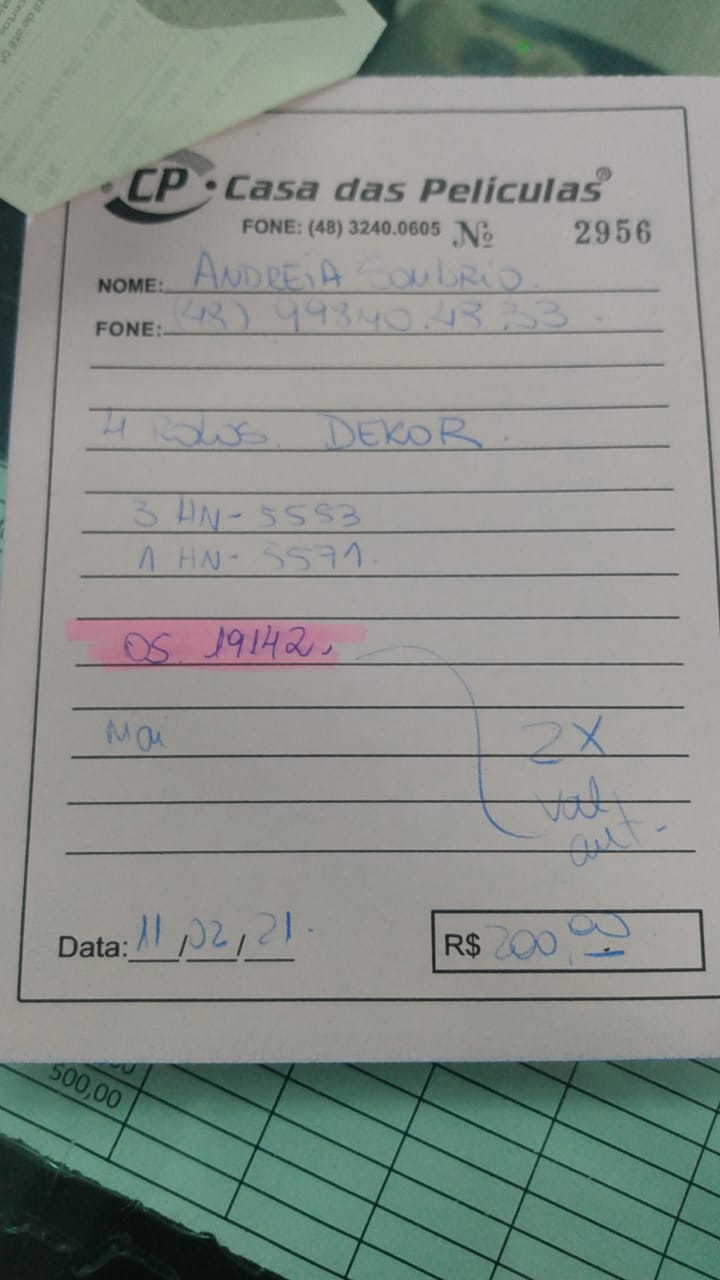 CP • Casa das Películas®
FONE: (48) 3240.0605 Nº 2956
NOME: ANDREIA SOMBRIO
FONE: (48) 99840.4833
4 ROLOS. DEKOR.
3 HN-5553
1 HN-5571.
OS. 19142.
2X
val
aut.
Data: 11/02/21.
R$ 200,00
500,00